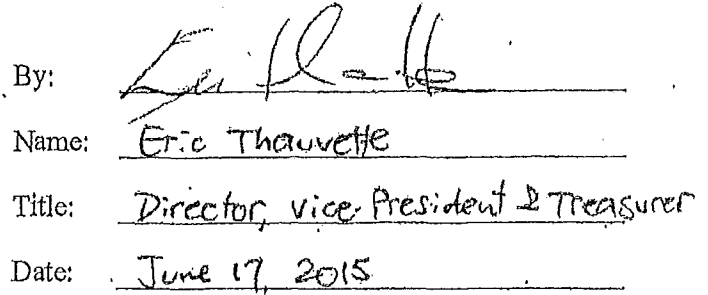 By:
Name: Eric Thauvette
Title: Director, Vice-President & Treasurer
Date: June 17, 2015